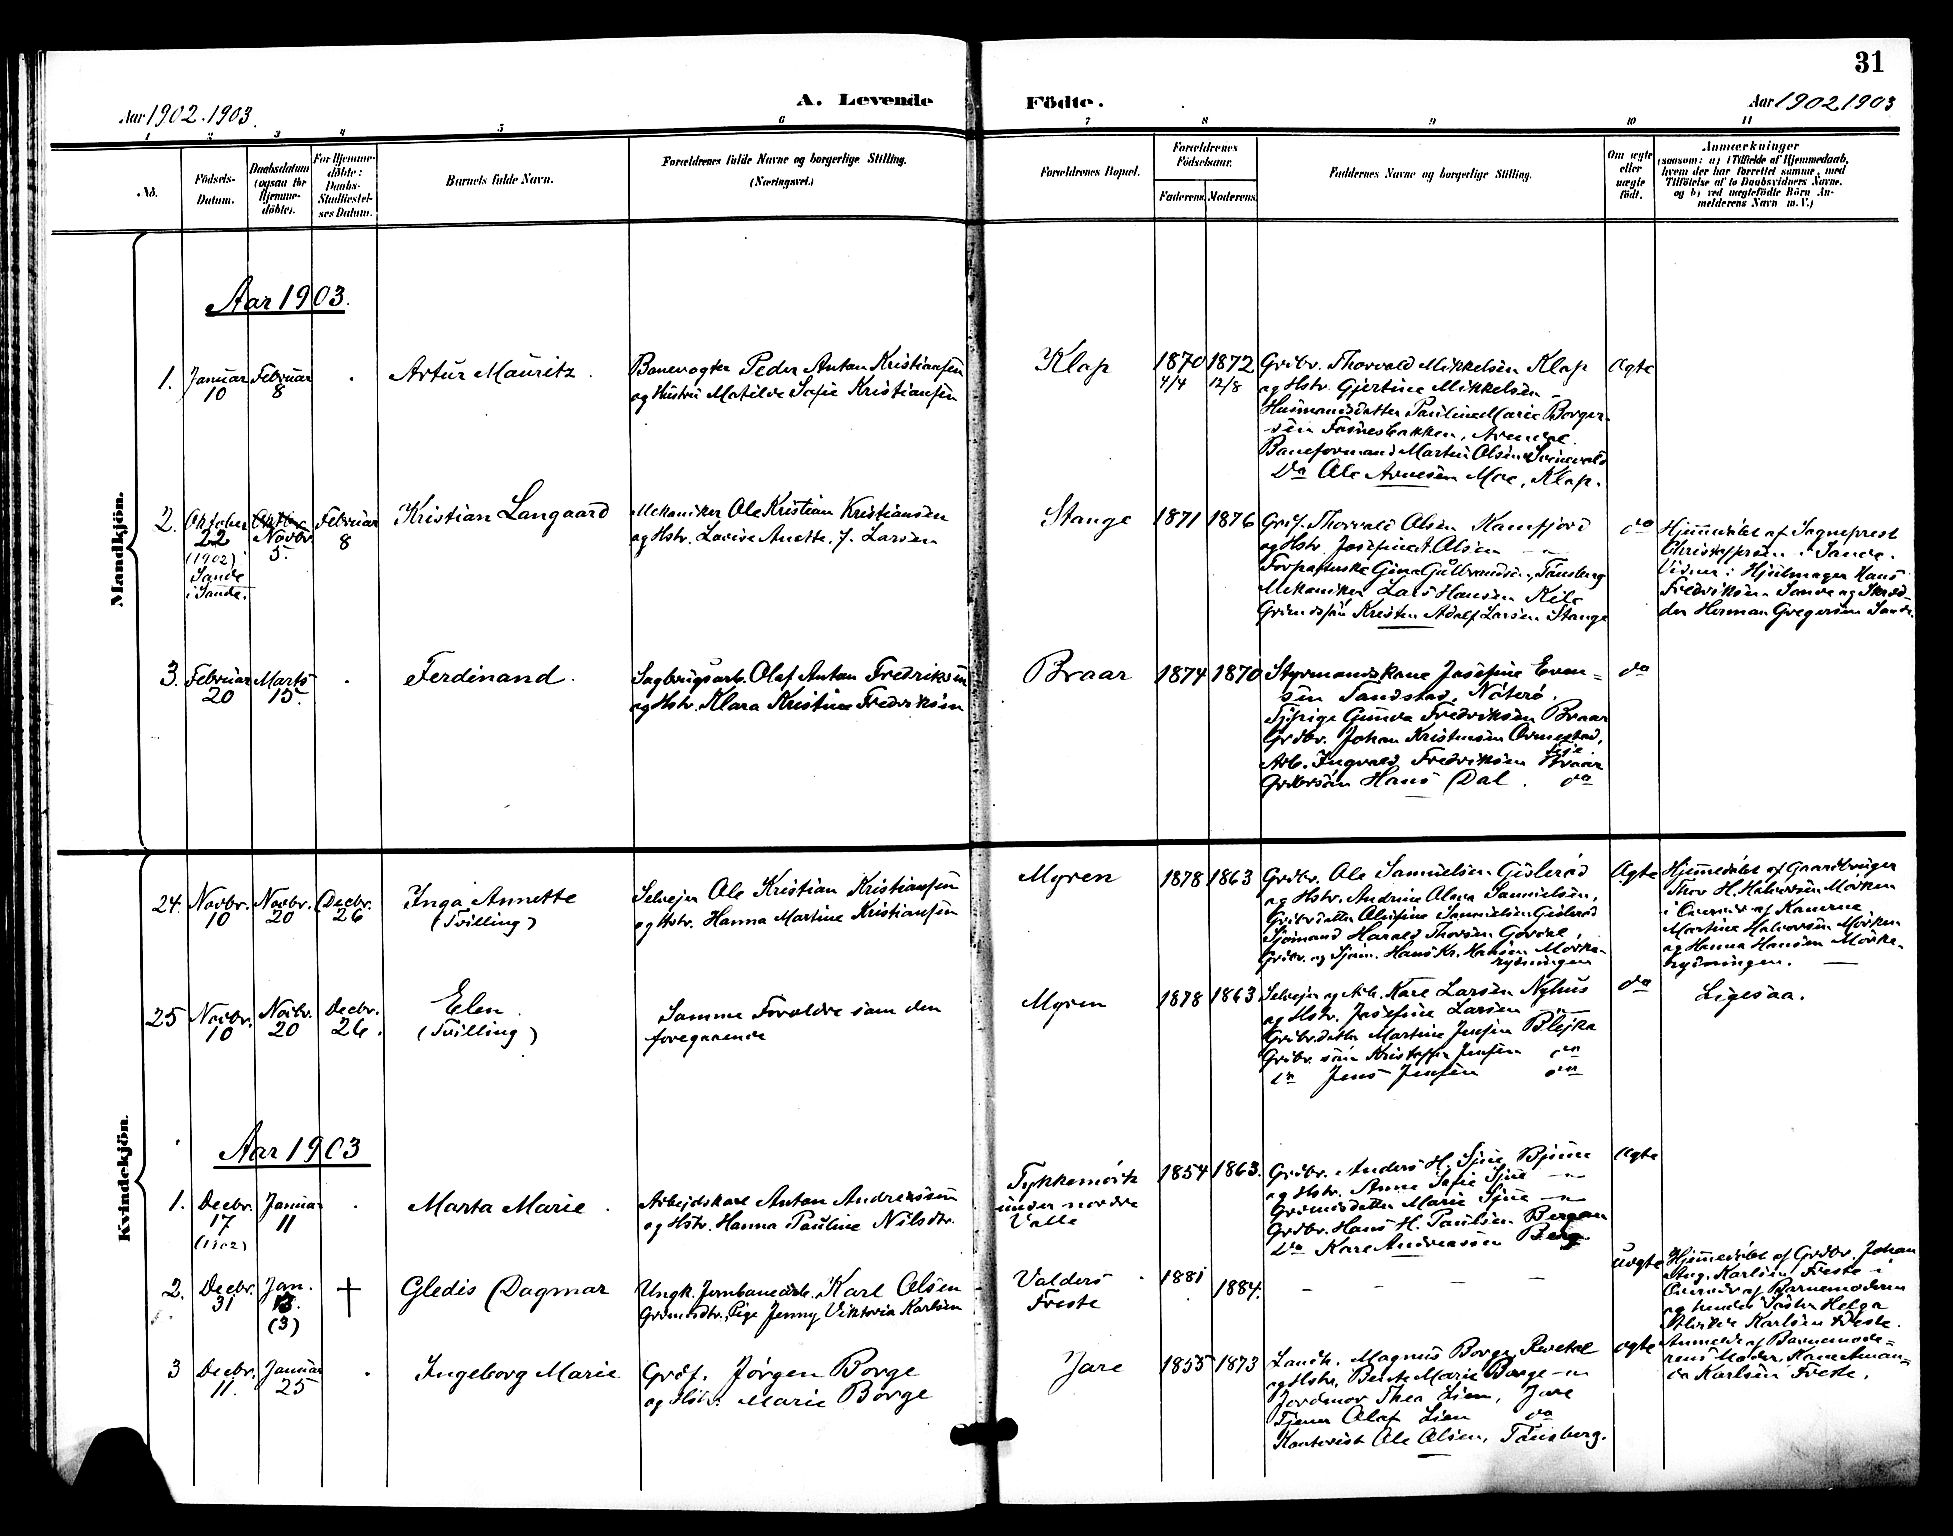 31
Aar 1902.1903.
A. Levende Födte.
Aar 1902 1903
1 2 3 4 5 6 7 8 9 10 11
No.
Födsels-Datum.
Daabsdatum (ogsaa for Hjemme-döbte).
For Hjemme-döbte: Daabs-Stadfæstel-ses Datum.
Barnets fulde Navn.
Forældrenes fulde Navne og borgerlige Stilling.
(Næringsvei.)
Forældrenes Bopæl.
Forældrenes Födselsaar.
Faderens. Moderens.
Faddernes Navne og borgerlige Stilling.
Om ægte eller uægte födt.
Anmærkninger
(saasom: a) i Tilfælde af Hjemmedaab,
hvem der har forrettet samme, med
Tilföielse af to Daabsvidners Navne,
og b) ved uægtefödte Börn An-
melderens Navn m. V.)
Mandkjön.
Aar 1903.
1. Januar 10 Februar 8
Artur Mauritz.
Banevogter Peder Anton Kristiansen
og Hustru Matilde Sofie Kristiansen
Klop
1870 4/4 1872 12/8
Grdbr. Thorvald Mikkelsen Klop
og Hstr. Gjertine Mikkelsen
Husmandsdatter Pauline Marie Borger-
sen Fosnesbakken, Arendal.
Baneformand Martin Olsen
Do Ole Arnesen Moe, Klop.
Ægte
2. Oktober 22 (1902) Sande i Sande.
Novbr. 5.
Februar 8
Kristian Langaard
Mekaniker Ole Kristian Kristiansen
og Hstr. Lovise Anette, f. Larsen
Stange
1871 1876
Grdf. Thorvald Olsen Ramfjord
og Hstr. Josefine A. Olsen - " -
Forpagterske Gina Gulbrandsen, Tönsberg
Mekaniker Lars Hansen Kile
Grdmdssön Kristen Adolf Larsen Stange
do
Hjemmedöbt af Sogneprest
Christophersen i Sande.
Vidner: Hjulmager Hans
Fredriksen Sande og Skræd-
der Herman Gregersen Sande.
3. Februar 20 Marts 15.
Ferdinand.
Sagbrugsarb. Olaf Anton Fredriksen
og Hstr. Klara Kristine Fredriksen
Braar
1874 1870
Styrmandskone Josefine Even=
sen Sandstad, Nöterö.
Tjpige Gunda Fredriksen Braar
Grdbr. Johan Kristensen Ormestad,
Arb. Ingvald Fredriksen Braar
Grdbrsön Hans Dal. do
do
Kvindekjön.
24. Novbr. 10 Novbr. 20 Decbr. 26
Inga Annette
(Tvilling)
Selveier Ole Kristian Kristiansen
og Hstr. Hanna Martine Kristiansen
Myren
1878 1863
Grdbr. Ole Samuelsen Gislerød
og Hstr. Andrine Olava Samuelsen,
Grdbrdatter Olufine Samuelsen Gislerød
Sjømand Harald Thorsen
Grdbr. og Sjøm. Hans Kr. Hansen Mørke-
rydningen
Ægte
Hjemmedöbt af Gaardbruger
Thor H. Halvorsen Mørken
i Overvær af Konerne
Martine Halvorsen Mørken
og Hanna Hansen Mørke-
rydningen.
25 Novbr. 10 Novbr. 20 Decbr. 26.
Elen.
(Tvilling)
Samme Forældre som den
foregaaende
Myren
1878 1863
Selveier og Arb. Kare Larsen Nyhus
og Hstr. Josefine Larsen - " -
Grdbr.datter Martine Jensen Blejka
Grdbr. sön Kristoffer Jensen do
do Jens Jensen do
do
Ligesaa.
Aar 1903
1. Decbr. 17 (1902) Januar 11
Marta Marie.
Arbejdskarl Anton Andreasen
og Hstr. Hanna Pauline Nilsdtr.
Tykkemörk
under nordre
Valle
1854 1863.
Grdbr. Anders H. Sjue Bjerme
og Hstr. Anne Sofie Sjue - " -
Grdmdsdatter Marie Sjue - " -
Grdbr. Hans H. Paulsen Bergan
Do Kare Andreassen Berg.
Ægte
2. Decbr. 31 Jan. 13. (3) +
Gledis Dagmar
Ungk. Jernbanearb. Karl Olsen
Grdmdsdtr., Pige Jenny Viktoria Karlsen
Valders
Freste
1881 1884.
uægte
Hjemmedöbt af Grdbr. Johan
Aug. Karlsen Freste i
Overvær af Barnemoderen
og hendes Söster Helga
Karlsen Freste.
Anmeldt af Barnemode=
rens Moder, Kone Aman-
da Karlsen Freste.
3 Decbr. 11. Januar 25
Ingeborg Marie
Grdf. Jørgen Borge
og Hstr. Marie Borge
Jare
1855 1873
Landh. Magnus Borge Revetal
og Hstr. Berte Marie Borge - " -
Jordmor Thea Lien, Jare
Tjener Olaf Lien do
Kontorist Ole Olsen, Tönsberg.
ægte